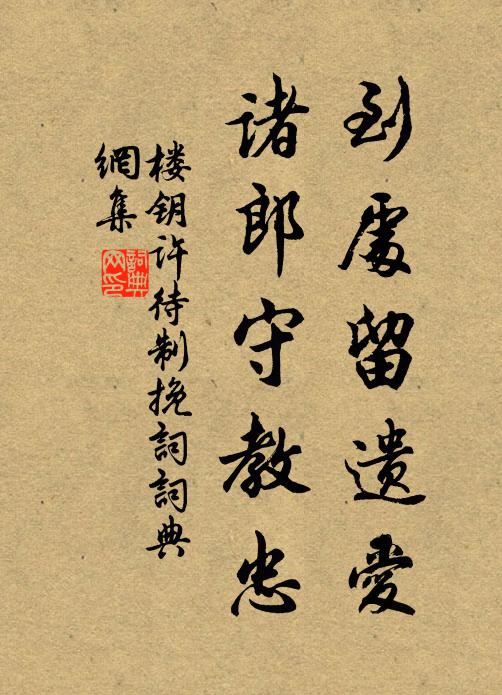 到處留遺愛
诸郎守教忠
楼钥许待制挽詞詞典
網集
詞典
网印